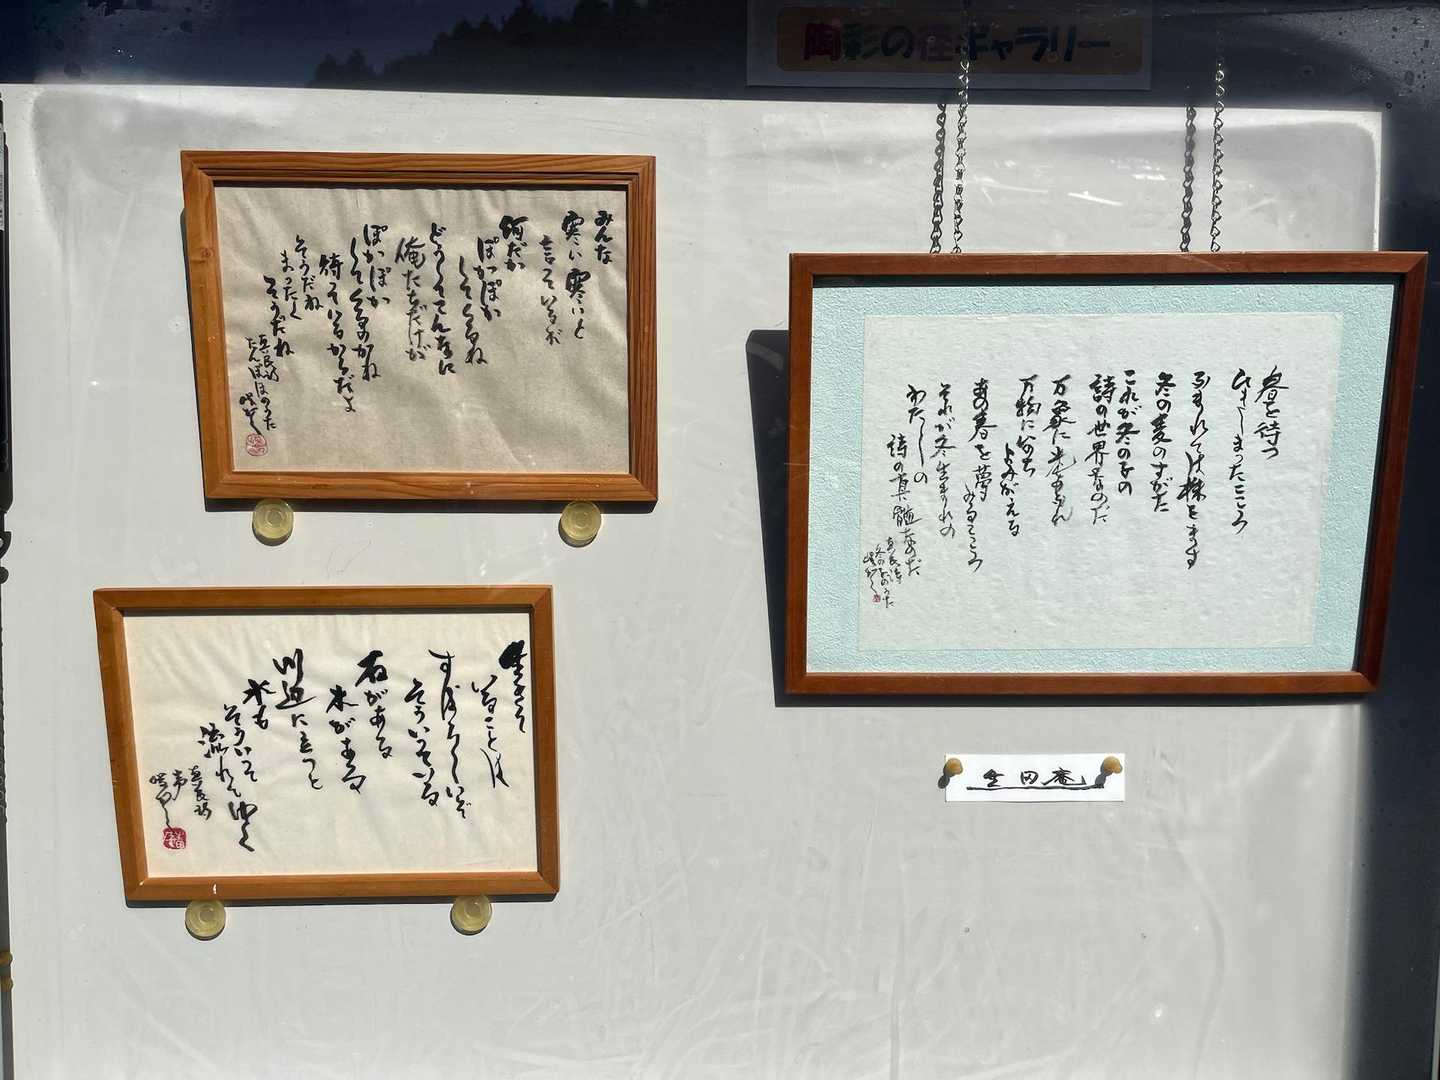 陶彩の径ギャラリー
みんな
寒い寒いと
言っているが
何だか
ぽかぽか
してくるね
どうしてこんなに
俺たちだけが
ぽかぽか
してくるのかね
待っているからだよ
そうだね
まったく
そうだね
真民詩
たんぽぽのうた
生きて
いることは
すばらしいぞ
そういっている
石がある
木がある
川辺に立つと
水も
そういって
流れてゆく
真民詩
春を待つ
ひきしまったこころ
ふまれては株をます
冬の麦のすがた
これが冬の子の
詩の世界なのだ
万象に光あふれ
万物に命
よみがえる
あの春を夢
みるこころ
それが冬生まれの
わたしの
詩の真髄なのだ
真民詩
冬の子のうた